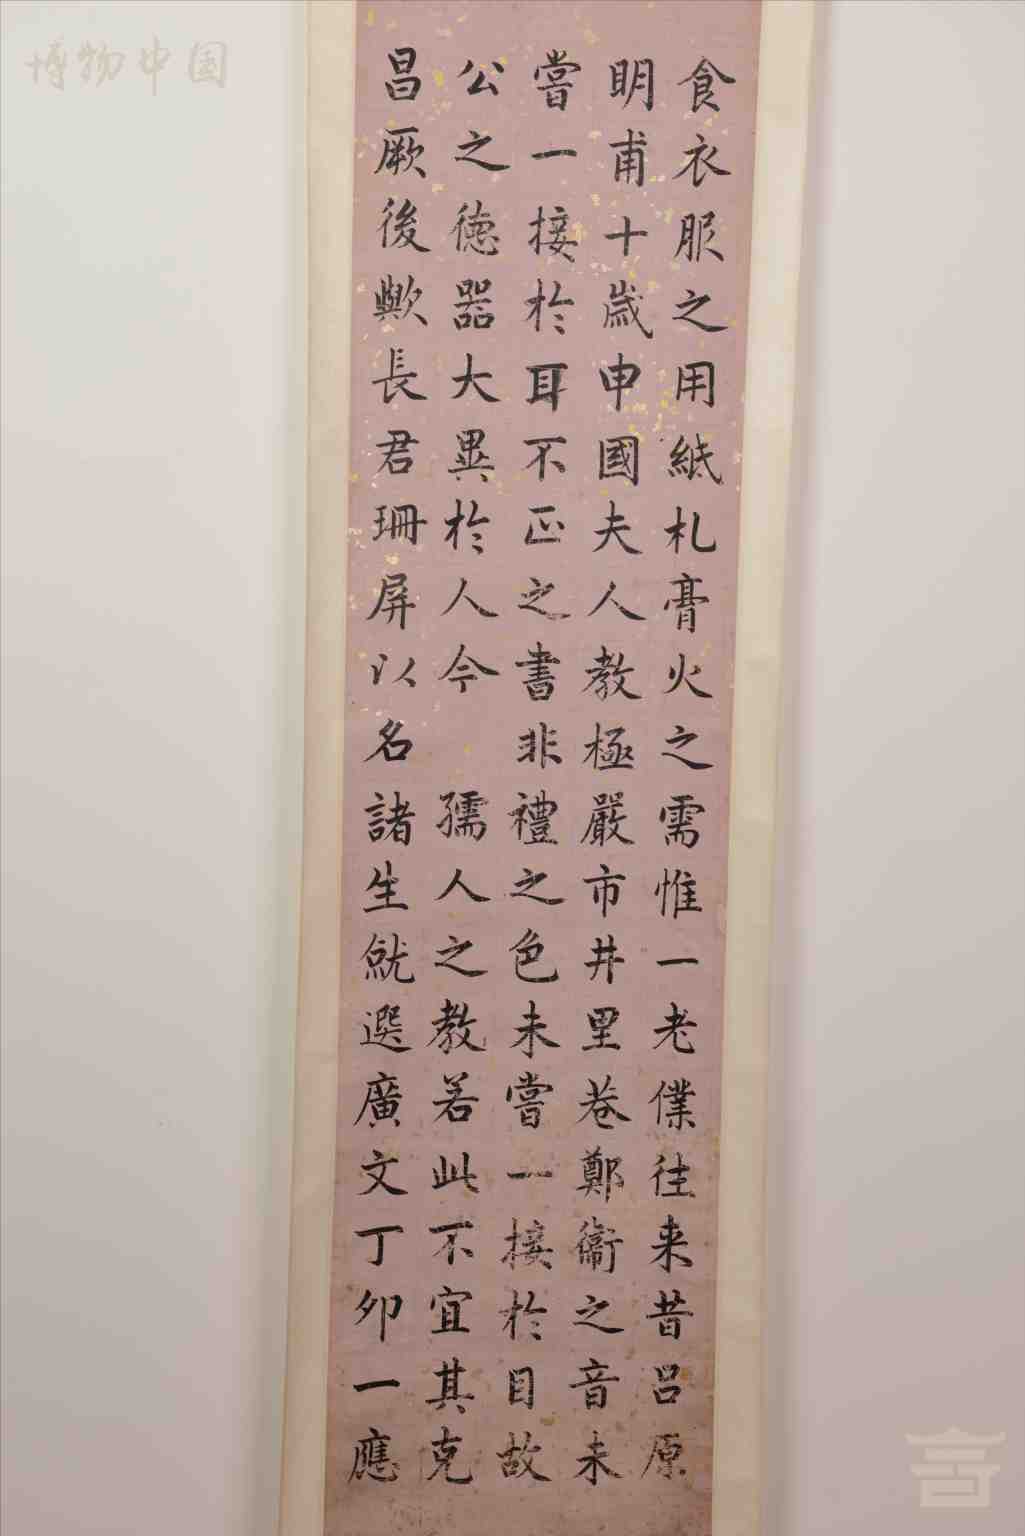 食衣服之用紙札膏火之需惟一老僕往来昔吕原
明甫十歲申國夫人教極嚴市井里巷鄭衞之音未
嘗一接於耳不正之書非禮之色未嘗一接於目故
公之德器大異於人今 孺人之教若此不宜其克
昌厥後歟長君珊屏以名諸生就選廣文丁卯一應
博物中国